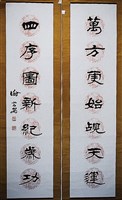 萬方更始觇天運
四序圖新紀歲功